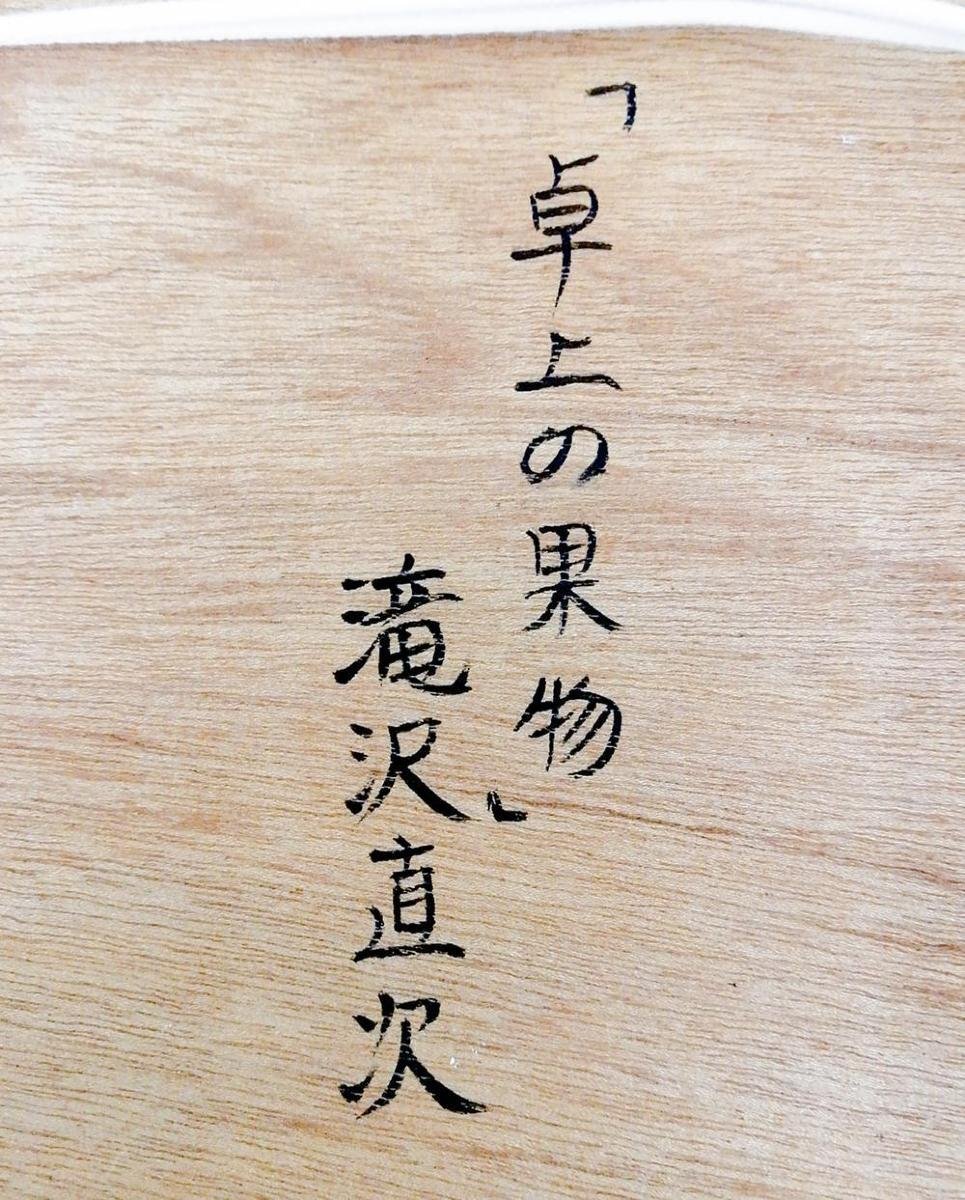 「卓上の果物」
滝沢直次